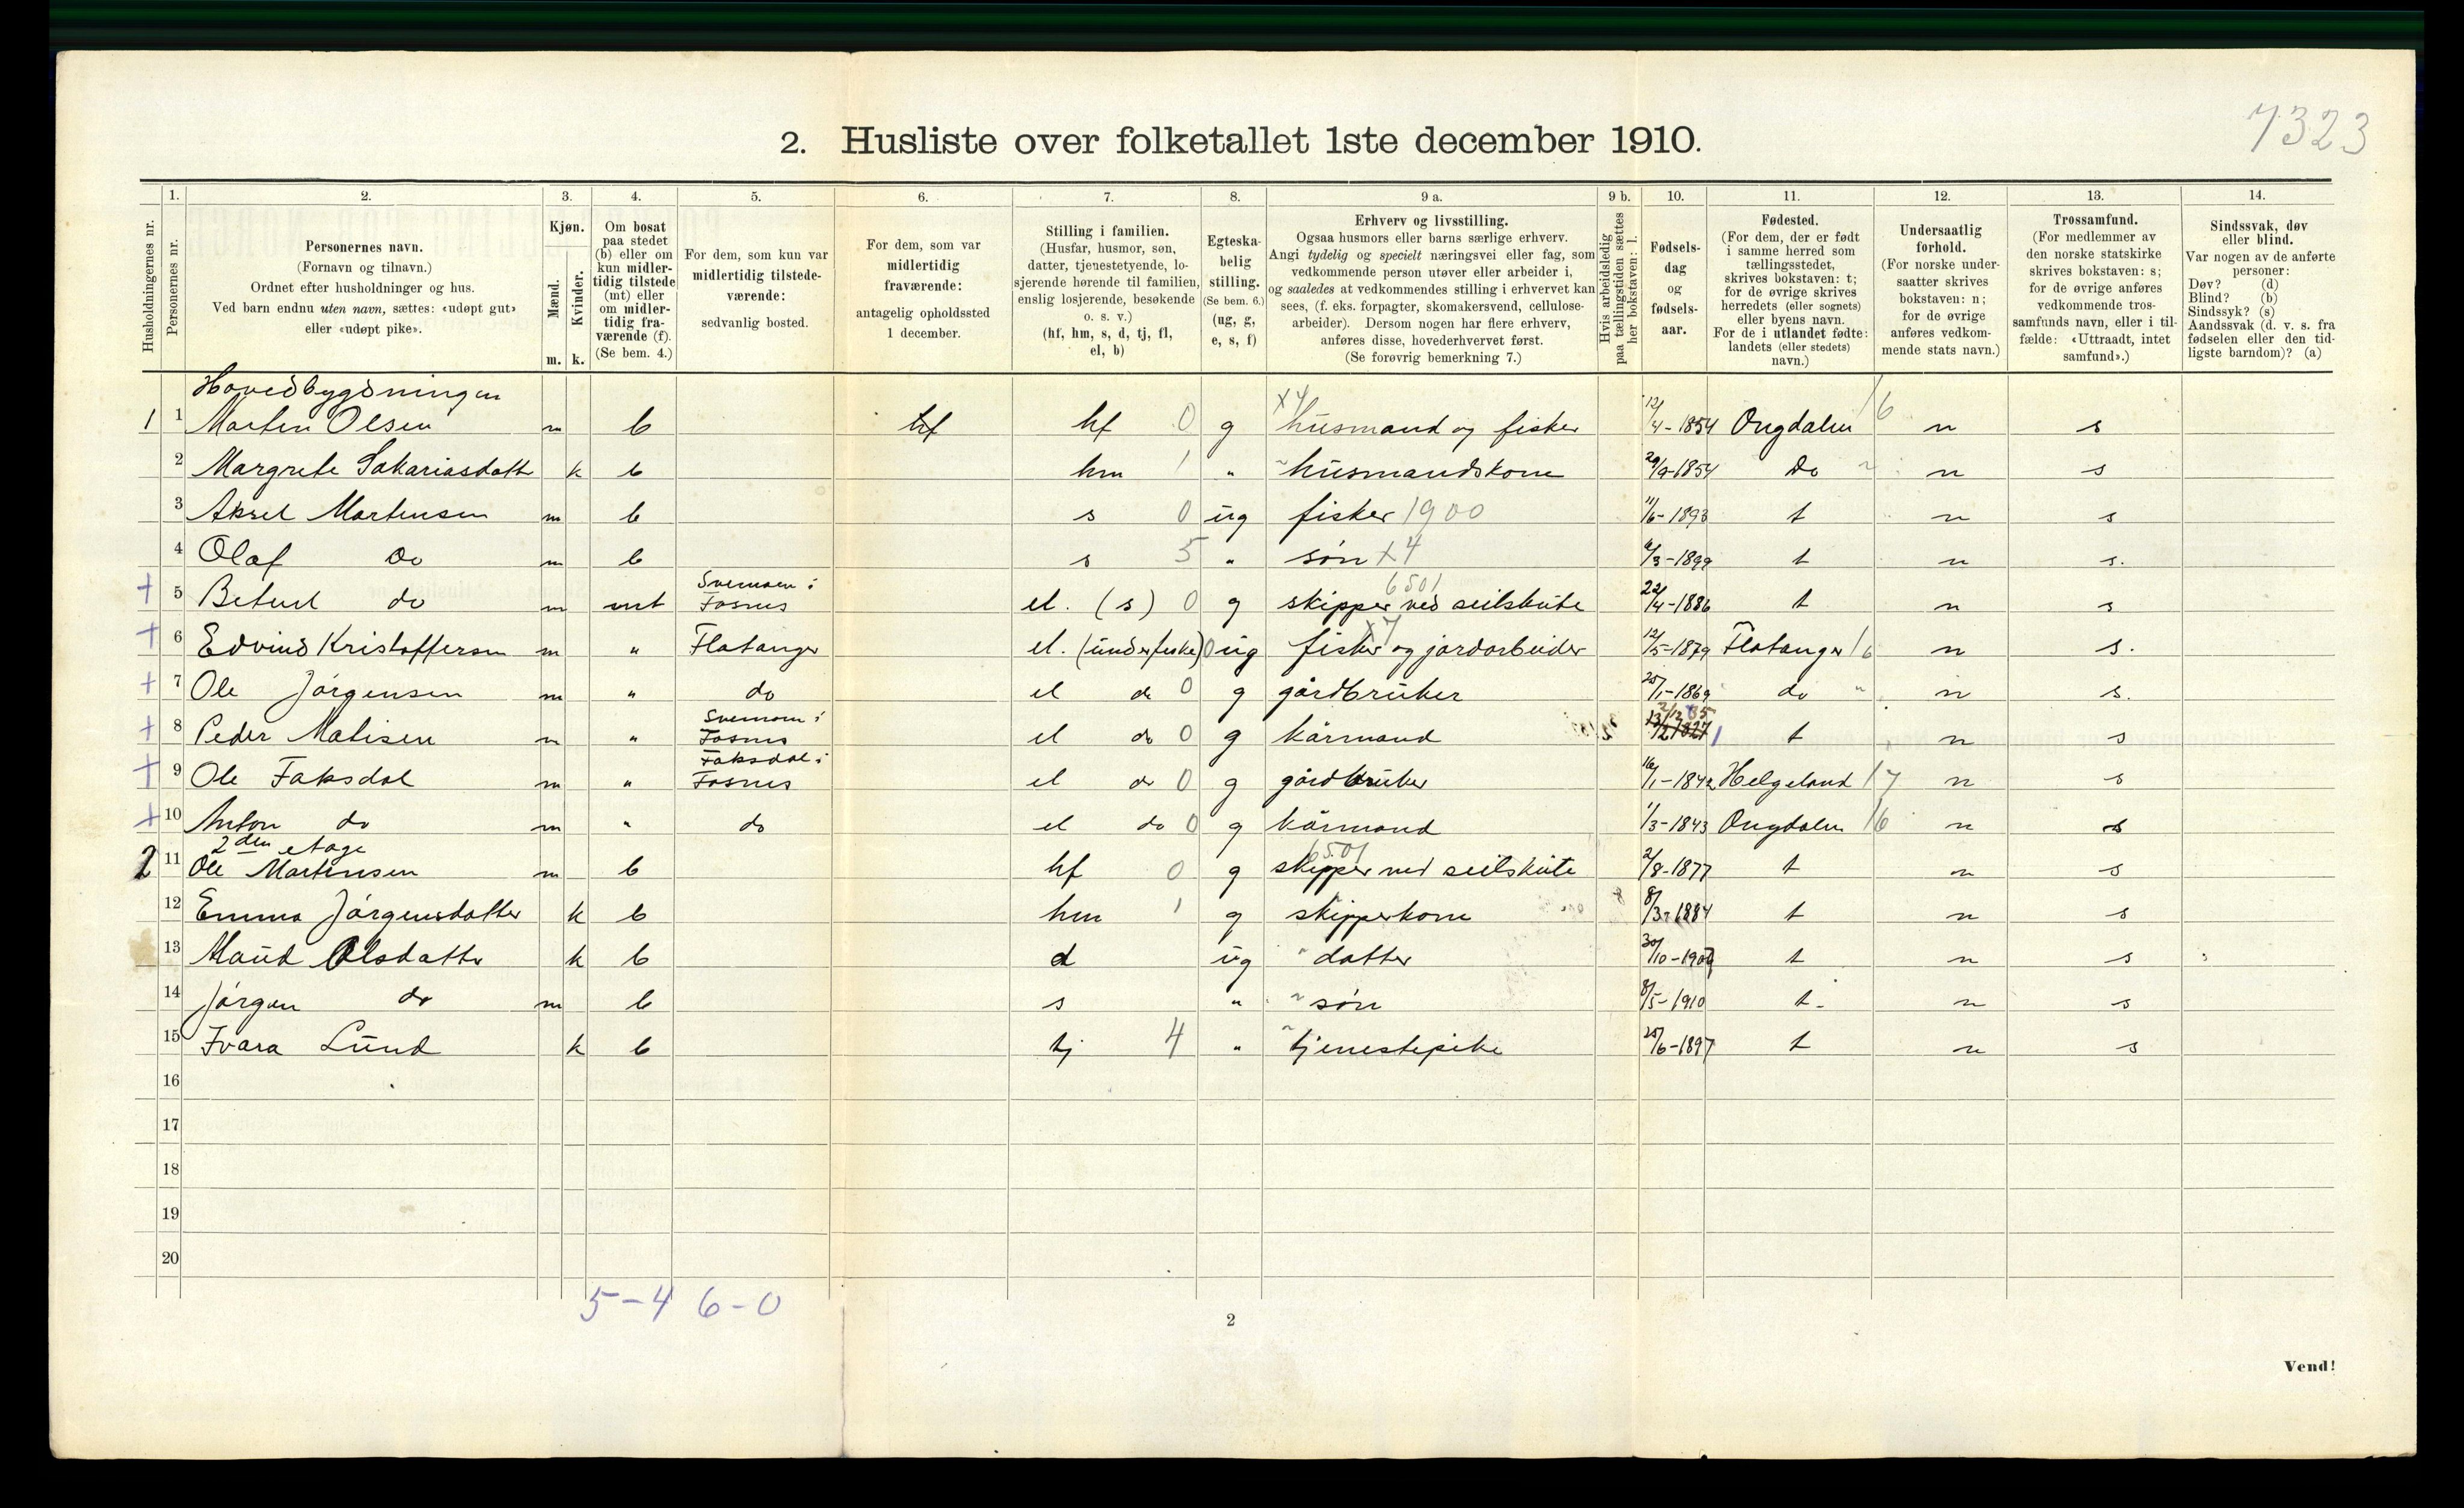 7323
2. Husliste over folketallet 1ste december 1910.
1. 2. 3. 4. 5. 6. 7. 8. 9 a. 9 b. 10. 11. 12. 13. 14.
Husholdningernes nr.
Personernes nr.
Personernes navn.
(Fornavn og tilnavn.)
Ordnet efter husholdninger og hus.
Ved barn endnu uten navn, sættes: «udøpt gut»
eller «udøpt pike».
Kjøn.
Mænd.
Kvinder.
m. k.
Om bosat
paa stedet
(b) eller om
kun midler-
tidig tilstede
(mt) eller
om midler-
tidig fra-
værende (f).
(Se bem. 4.)
For dem, som kun var
midlertidig tilstede-
værende:
sedvanlig bosted.
For dem, som var
midlertidig
fraværende:
antagelig opholdssted
1 december.
Stilling i familien.
(Husfar, husmor, søn,
datter, tjenestetyende, lo-
sjerende hørende til familien,
enslig losjerende, besøkende
o. s. v.)
(hf, hm, s, d, tj, fl,
el, b)
Egteska-
belig
stilling.
(Se bem. 6.)
(ug, g,
e, s, f)
Erhverv og livsstilling.
Ogsaa husmors eller barns særlige erhverv.
Angi tydelig og specielt næringsvei eller fag, som
vedkommende person utøver eller arbeider i,
og saaledes at vedkommendes stilling i erhvervet kan
sees, (f. eks. forpagter, skomakersvend, cellulose-
arbeider). Dersom nogen har flere erhverv,
anføres disse, hovederhvervet først.
(Se forøvrig bemerkning 7.)
Hvis arbeidsledig
paa tællingstiden sættes
her bokstaven: l.
Fødsels-
dag
og
fødsels-
aar.
Fødested.
(For dem, der er født
i samme herred som
tællingsstedet,
skrives bokstaven: t;
for de øvrige skrives
herredets (eller sognets)
eller byens navn.
For de i utlandet fødte:
landets (eller stedets)
navn.)
Undersaatlig
forhold.
(For norske under-
saatter skrives
bokstaven: n;
for de øvrige
anføres vedkom-
mende stats navn.)
Trossamfund.
(For medlemmer av
den norske statskirke
skrives bokstaven: s;
for de øvrige anføres
vedkommende tros-
samfunds navn, eller i til-
fælde: «Uttraadt, intet
samfund».)
Sindssvak, døv
eller blind.
Var nogen av de anførte
personer:
Døv? (d)
Blind? (b)
Sindssyk? (s)
Aandssvak (d. v. s. fra
fødselen eller den tid-
ligste barndom)? (a)
Hovedbygdningen
1 1 Morten Olsen m b hf hf 0 g x4 husmand og fisker 12/4-1854 Ongdalen 16 n s
2 Margrete Sakariasdatt k b hm 1 " husmandskone 29/9-1854 Do n s
3 Aksel Martensen m b s 0 ug fisker 1900 11/6-1893 t n s
4 Olaf Do m b s 5 " søn x4 6/3-1899 t n s.
+ 5 Betuel do m mt Svemoen i Fosnes el. (s) 0 g 6501 skipper ved seilskute 22/4-1886 t n s
+ 6 Edvind Kristoffersen m " Flatanger el. (under fiske) 0 ug x7 fisker og jordarbeider 12/5-1879 Flatanger 16 n s.
+ 7 Ole Jørgensen m " do el do 0 g gårdbruker 25/1-1869 do " n s.
+ 8 Peder Matisen m " Svemoen i Fosnes el do 0 g kårmand 2/12 35 t n s
+ 9 Ole Faksdal m " Faksdal i Fosnes el do 0 g gårdbruker 16/1-1842 Helgeland 17 n s
+ 10 Anton do m " do el do 0 g kårmand 1/3-1843 Ongdalen 16 n s
2den etage
2 11 Ole Martinsen m b hf 0 g 6501 skipper ved seilskute 2/8-1877 t n s
12 Emma Jørgensdatter k b hm 1 g skipperkone 8/3-1884 t n s
13 Maud Olsdatter k b d ug " datter 30/10-1907 t n s
14 Jørgen do m b s " " søn 8/5-1910 t- n s
15 Ivara Lund k b tj 4 " tjenestepike 25/6-1897 t n s
16
17
18
19
20
5-4 6-0
2
Vend!